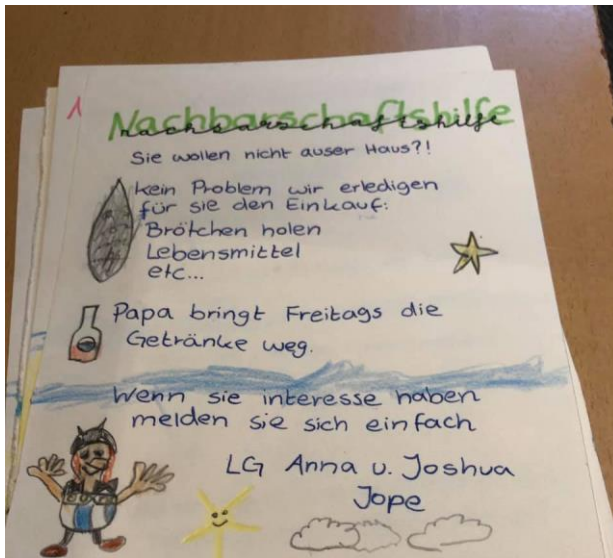 1
Nachbarschaftshilfe
nachbarschaftshilfe
Sie wollen nicht auser Haus?!
kein Problem wir erledigen
für sie den Einkauf:
Brötchen holen
Lebensmittel
etc...
Papa bringt Freitags die
Getränke weg.
Wenn sie interesse haben
melden sie sich einfach
LG Anna u. Joshua
Jope